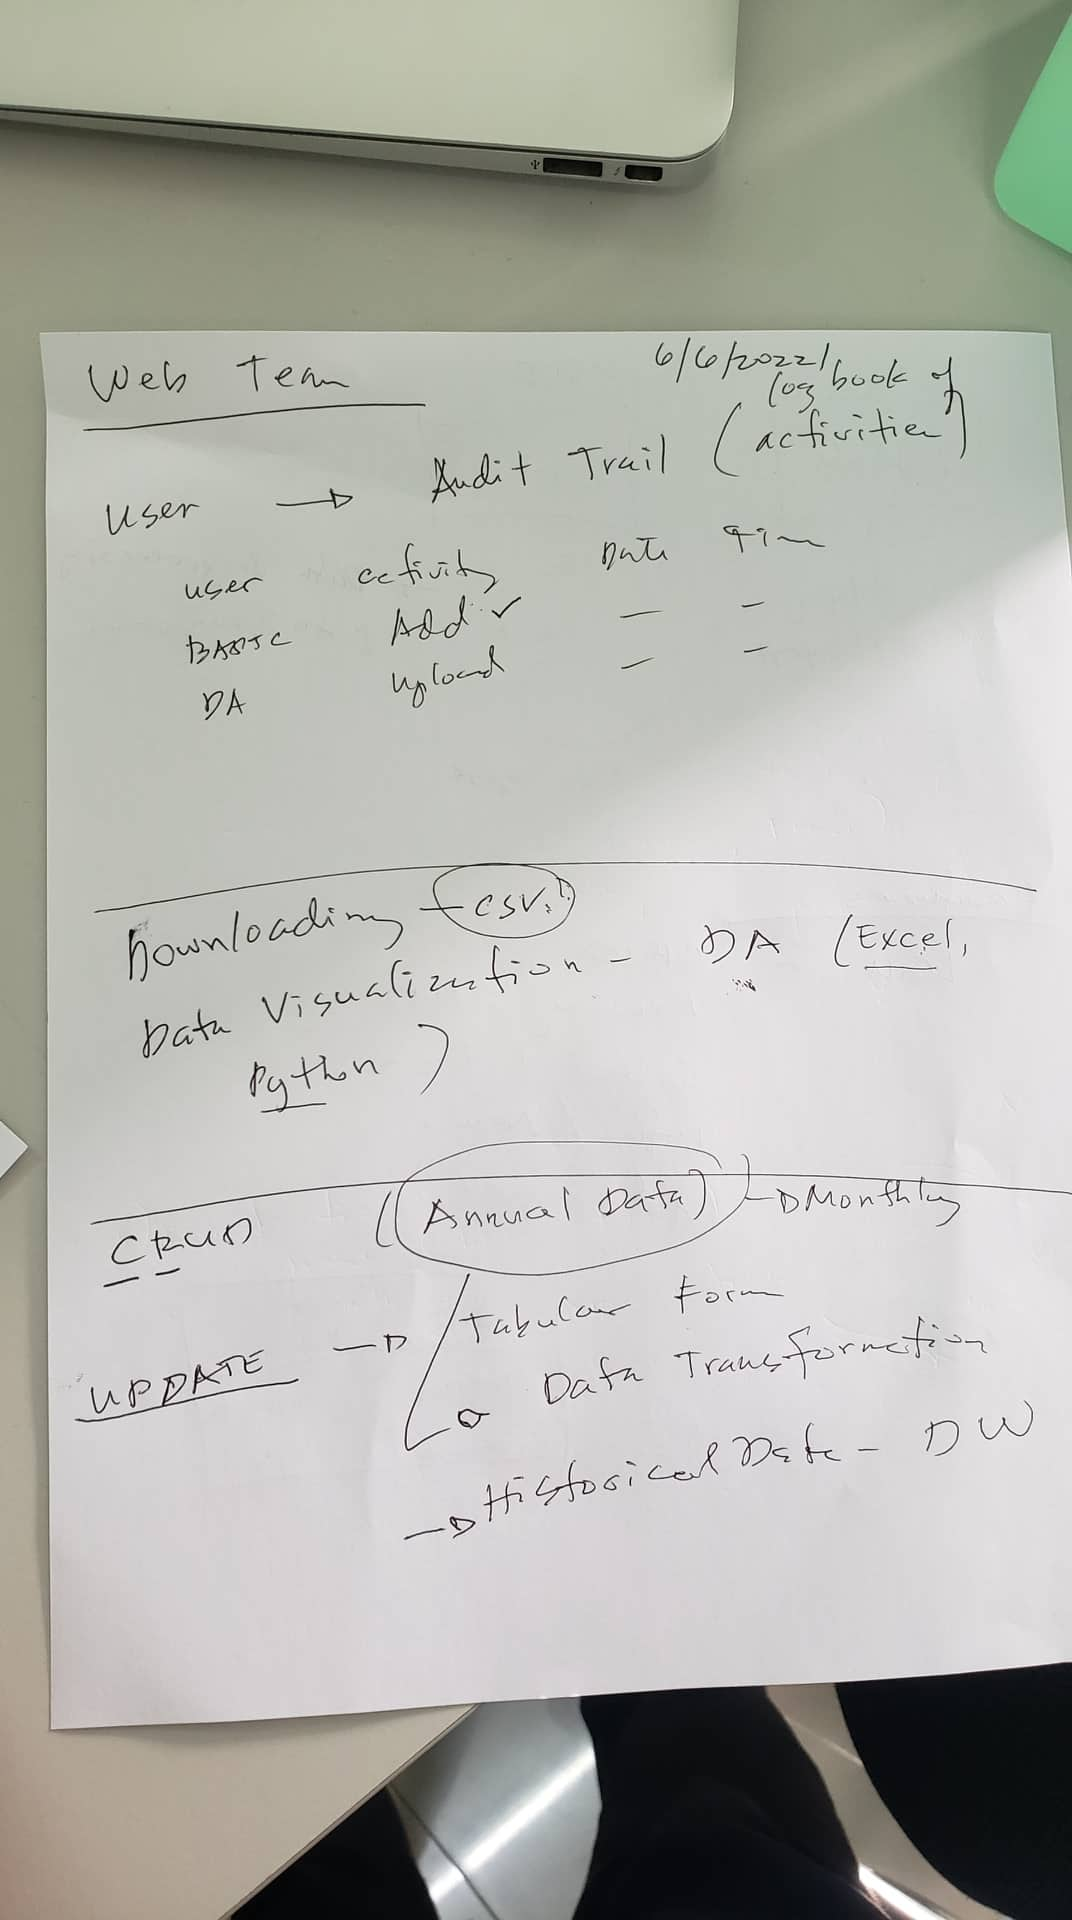 Web Team
6/6/2022
User → Audit Trail (log book of activities)
user activity Date Time
BASIC Add ✓ — —
DA Upload — —
Downloading → CSV.
Data Visualization - DA (Excel,
Python)
CRUD (Annual Data) → Monthly
UPDATE → Tabular Form
Data Transformation
→ Historical Data - DW